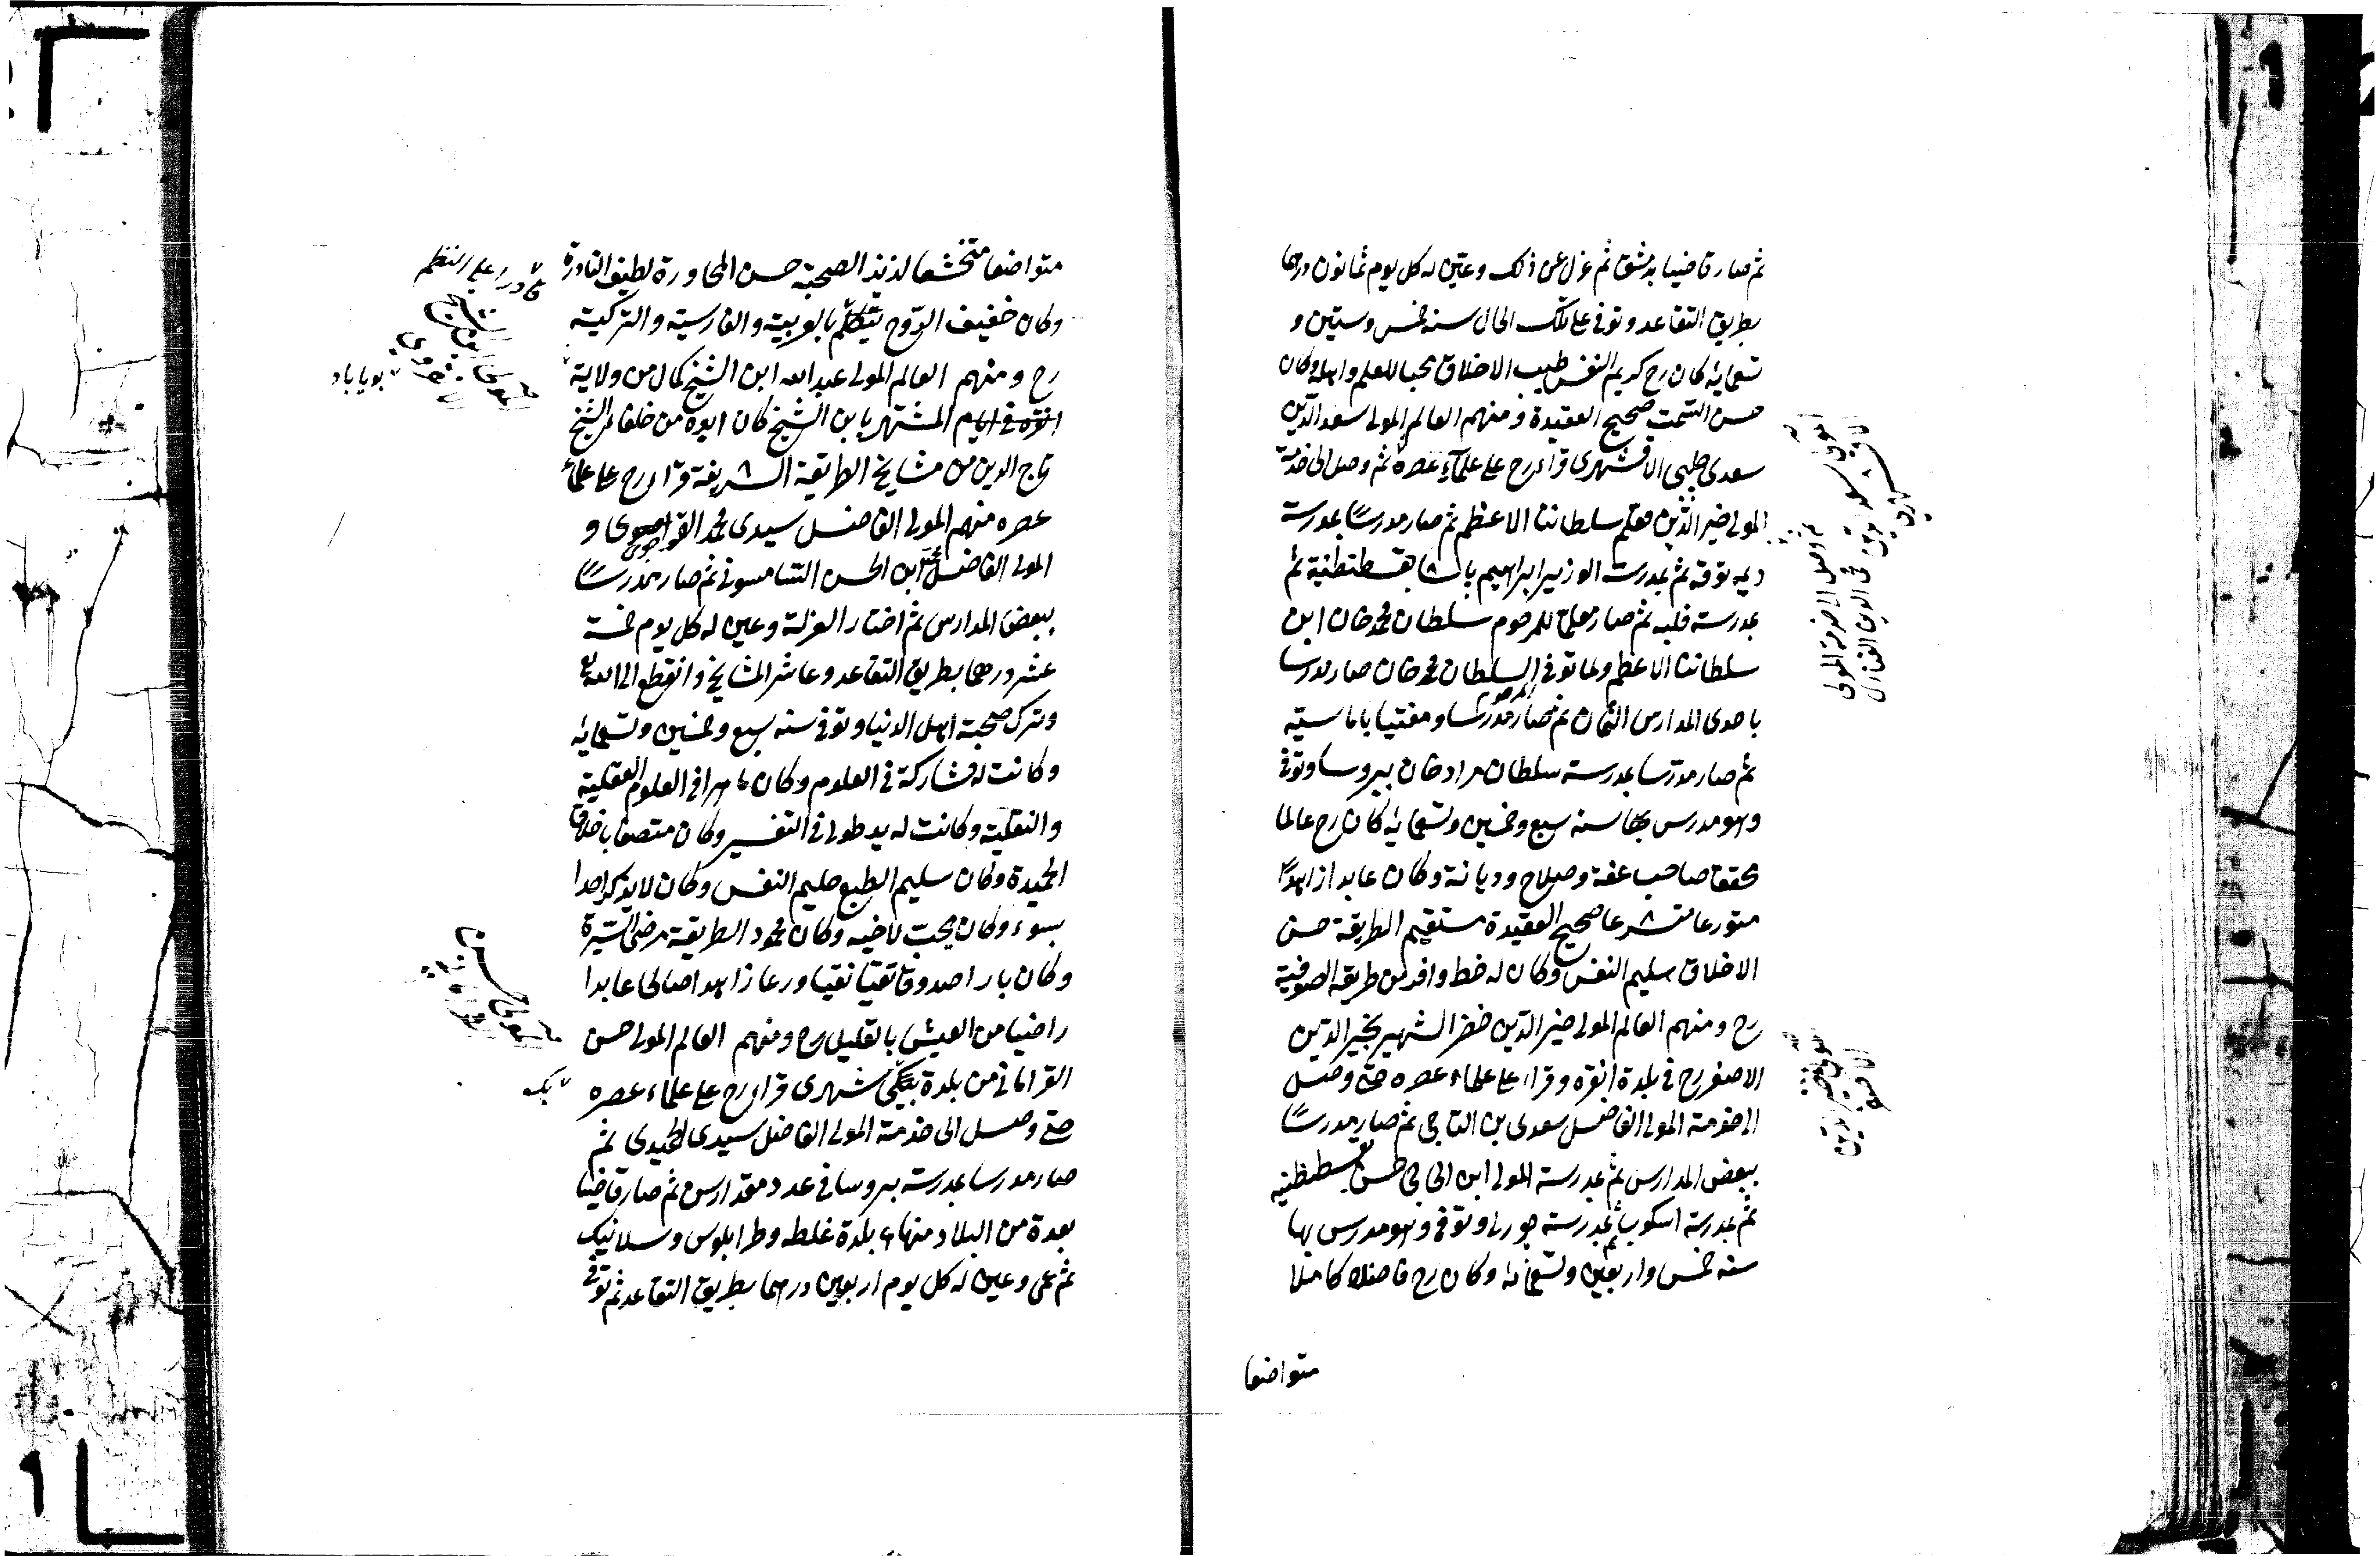 ثم صار قاضيا بدمشق ثم عزل عن ذلك وعين له كل يوم ثمانون درهما
بطريق التقاعد وتوفي على تلك الحال سنة خمس وستين و
تسعمائة كان رح كريم النفس طيب الاخلاق محبا للعلم واهله وكان
حسن السمت صحيح العقيدة ومنهم العالم المولى سعد الدين
سعدى جلبى الاقشهرى قرأ رح على علماء عصره ثم وصل الى خدمة
المولى خير الدين معلم سلطاننا الاعظم ثم صار مدرسا بمدرسة
ديمه توقه ثم بمدرسة الوزير ابراهيم باشا بقسطنطنية ثم
بمدرسة فلبه ثم صار معلما للمرحوم سلطان محمد خان ابن
سلطاننا الاعظم ولما توفي السلطان محمد خان صار مدرسا
المرحوم
باحدى المدارس الثمان ثم صار مدرسا ومفتيا باماسيه
ثم صار مدرسا بمدرسة سلطان مراد خان ببروسا وتوفي
وهو مدرس بها سنة سبع وخمسين وتسعمائة كان رح عالما
محققا صاحب عفة وصلاح وديانة وكان عابدا زاهدا
متورعا متشرعا صحيح العقيدة مستقيم الطريقة حسن
الاخلاق سليم النفس وكان له خط وافر من طريقة الصوفية
رح ومنهم العالم المولى خير الدين خضر الشهير بخير الدين
الاصغر رح في بلدة انقره وقراء على علماء عصره حتى وصل
الى خدمة المولى الفاضل سعدى بن التاجي ثم صار مدرسا
ببعض المدارس ثم بمدرسة المولى ابن الحاجى حسن بقسطنطنيه
ثم بمدرسة اسكوب ثم بمدرسة جورلى وتوفي وهو مدرس بها
سنة خمس واربعين وتسعمائة وكان رح فاضلا كاملا
متواضعا
ثم وصل الى خدمة المولى
محي الدين الفنارى
متواضعا متخشعا لذيذ الصحبة حسن المحاورة لطيف النادرة
قادرا على النظم
وكان خفيف الروح يتكلم بالعربية والفارسية والتركية
رح ومنهم العالم المولى عبد الله ابن الشيخ كمال من ولاية
بوياباد
انقره في ايام المشتهر بابن الشيخ كان ابوه من خلفاء الشيخ
تاج الدين من مشايخ الطريقة الشريفة قرأ رح على علماء
عصره منهم المولى الفاضل سيدى محمد القوجوى و
المولى الفاضل محمد ابن الحسن السامسونى ثم صار مدرسا
ببعض المدارس ثم اختار العزلة وعين له كل يوم خمسة
عشر درهما بطريق التقاعد وعاشر المشايخ وانقطع الى الله تع
وترك صحبة اهل الدنيا وتوفي سنة سبع وخمسين وتسعمائة
وكانت له مشاركة في العلوم وكان ماهرا في العلوم العقلية
والنقلية وكانت له يد طولى في التفسير وكان متصفا باخلاق
الحميدة وكان سليم الطبع حليم النفس وكان لا يذكر احدا
بسوء وكان يحب لاخيه وكان محمود الطريقة مرضى السيرة
وكان بارا صدوقا تقيا نقيا ورعا زاهدا صالحا عابدا
راضيا من العيش بالقليل رح ومنهم العالم المولى حسن
القرامانى من بلدة بيكى شهرى قرأ رح على علماء عصره
بك
حتى وصل الى خدمة المولى الفاضل سيدى الحميدى ثم
صار مدرسا بمدرسة ببروسا في عدد مدارس ثم صار قاضيا
بعدة من البلاد منها بلدة غلطه وطرابلوس وسلانيك
ثم عمى وعين له كل يوم اربعين درهما بطريق التقاعد ثم توفي